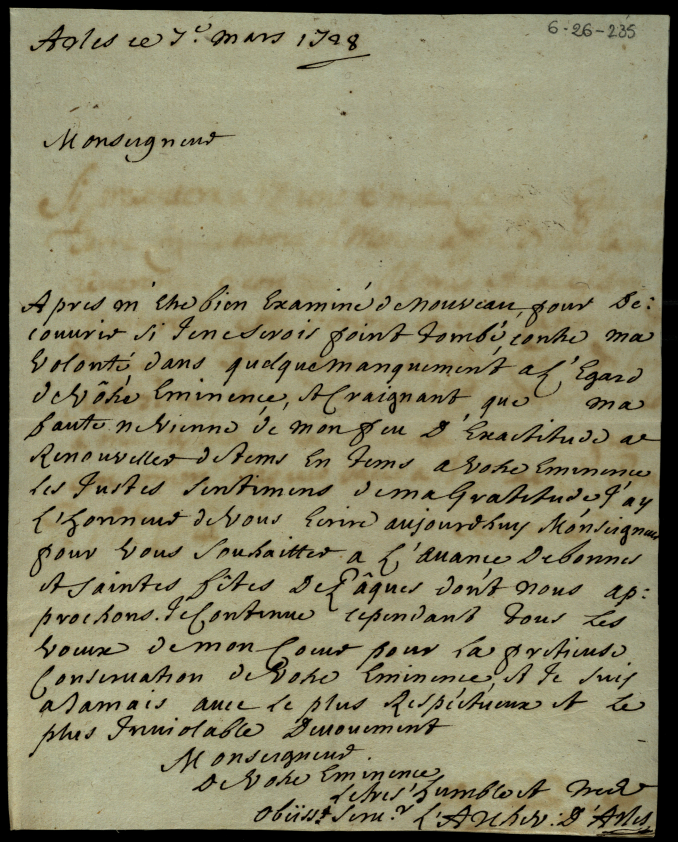 6-26-235
Arles ce 7e. mars 1728
Monseigneur
Apres m'être bien Examiné de nouveau pour De:
couvrir si Je ne serois point tombé, contre ma
volonté dans quelque manquement a L'Egard
de Vôtre Eminence, et Craignant que ma
faute ne Vienne de mon peu D'Exactitude a
Renouveller de tems En tems a Votre Eminence
Les Justes sentimens de ma Gratitude J'ay
L'honneur de Vous Ecrire aujourdhuy Monseigneur
pour Vous souhaitter a L'avance De bonnes
et saintes fêtes De Pâques dont nous ap:
prochons. Je Continue cependant tous Les
voeux de mon Coeur pour La pretieuse
Conservation de Votre Eminence, et Je suis
a Jamais avec Le plus Respéctueux et Le
plus Inviolable Devouement
Monseigneur.
De Votre Eminence
Le tres humble et tres
obeisst. servr. L'Archev: D'Arles